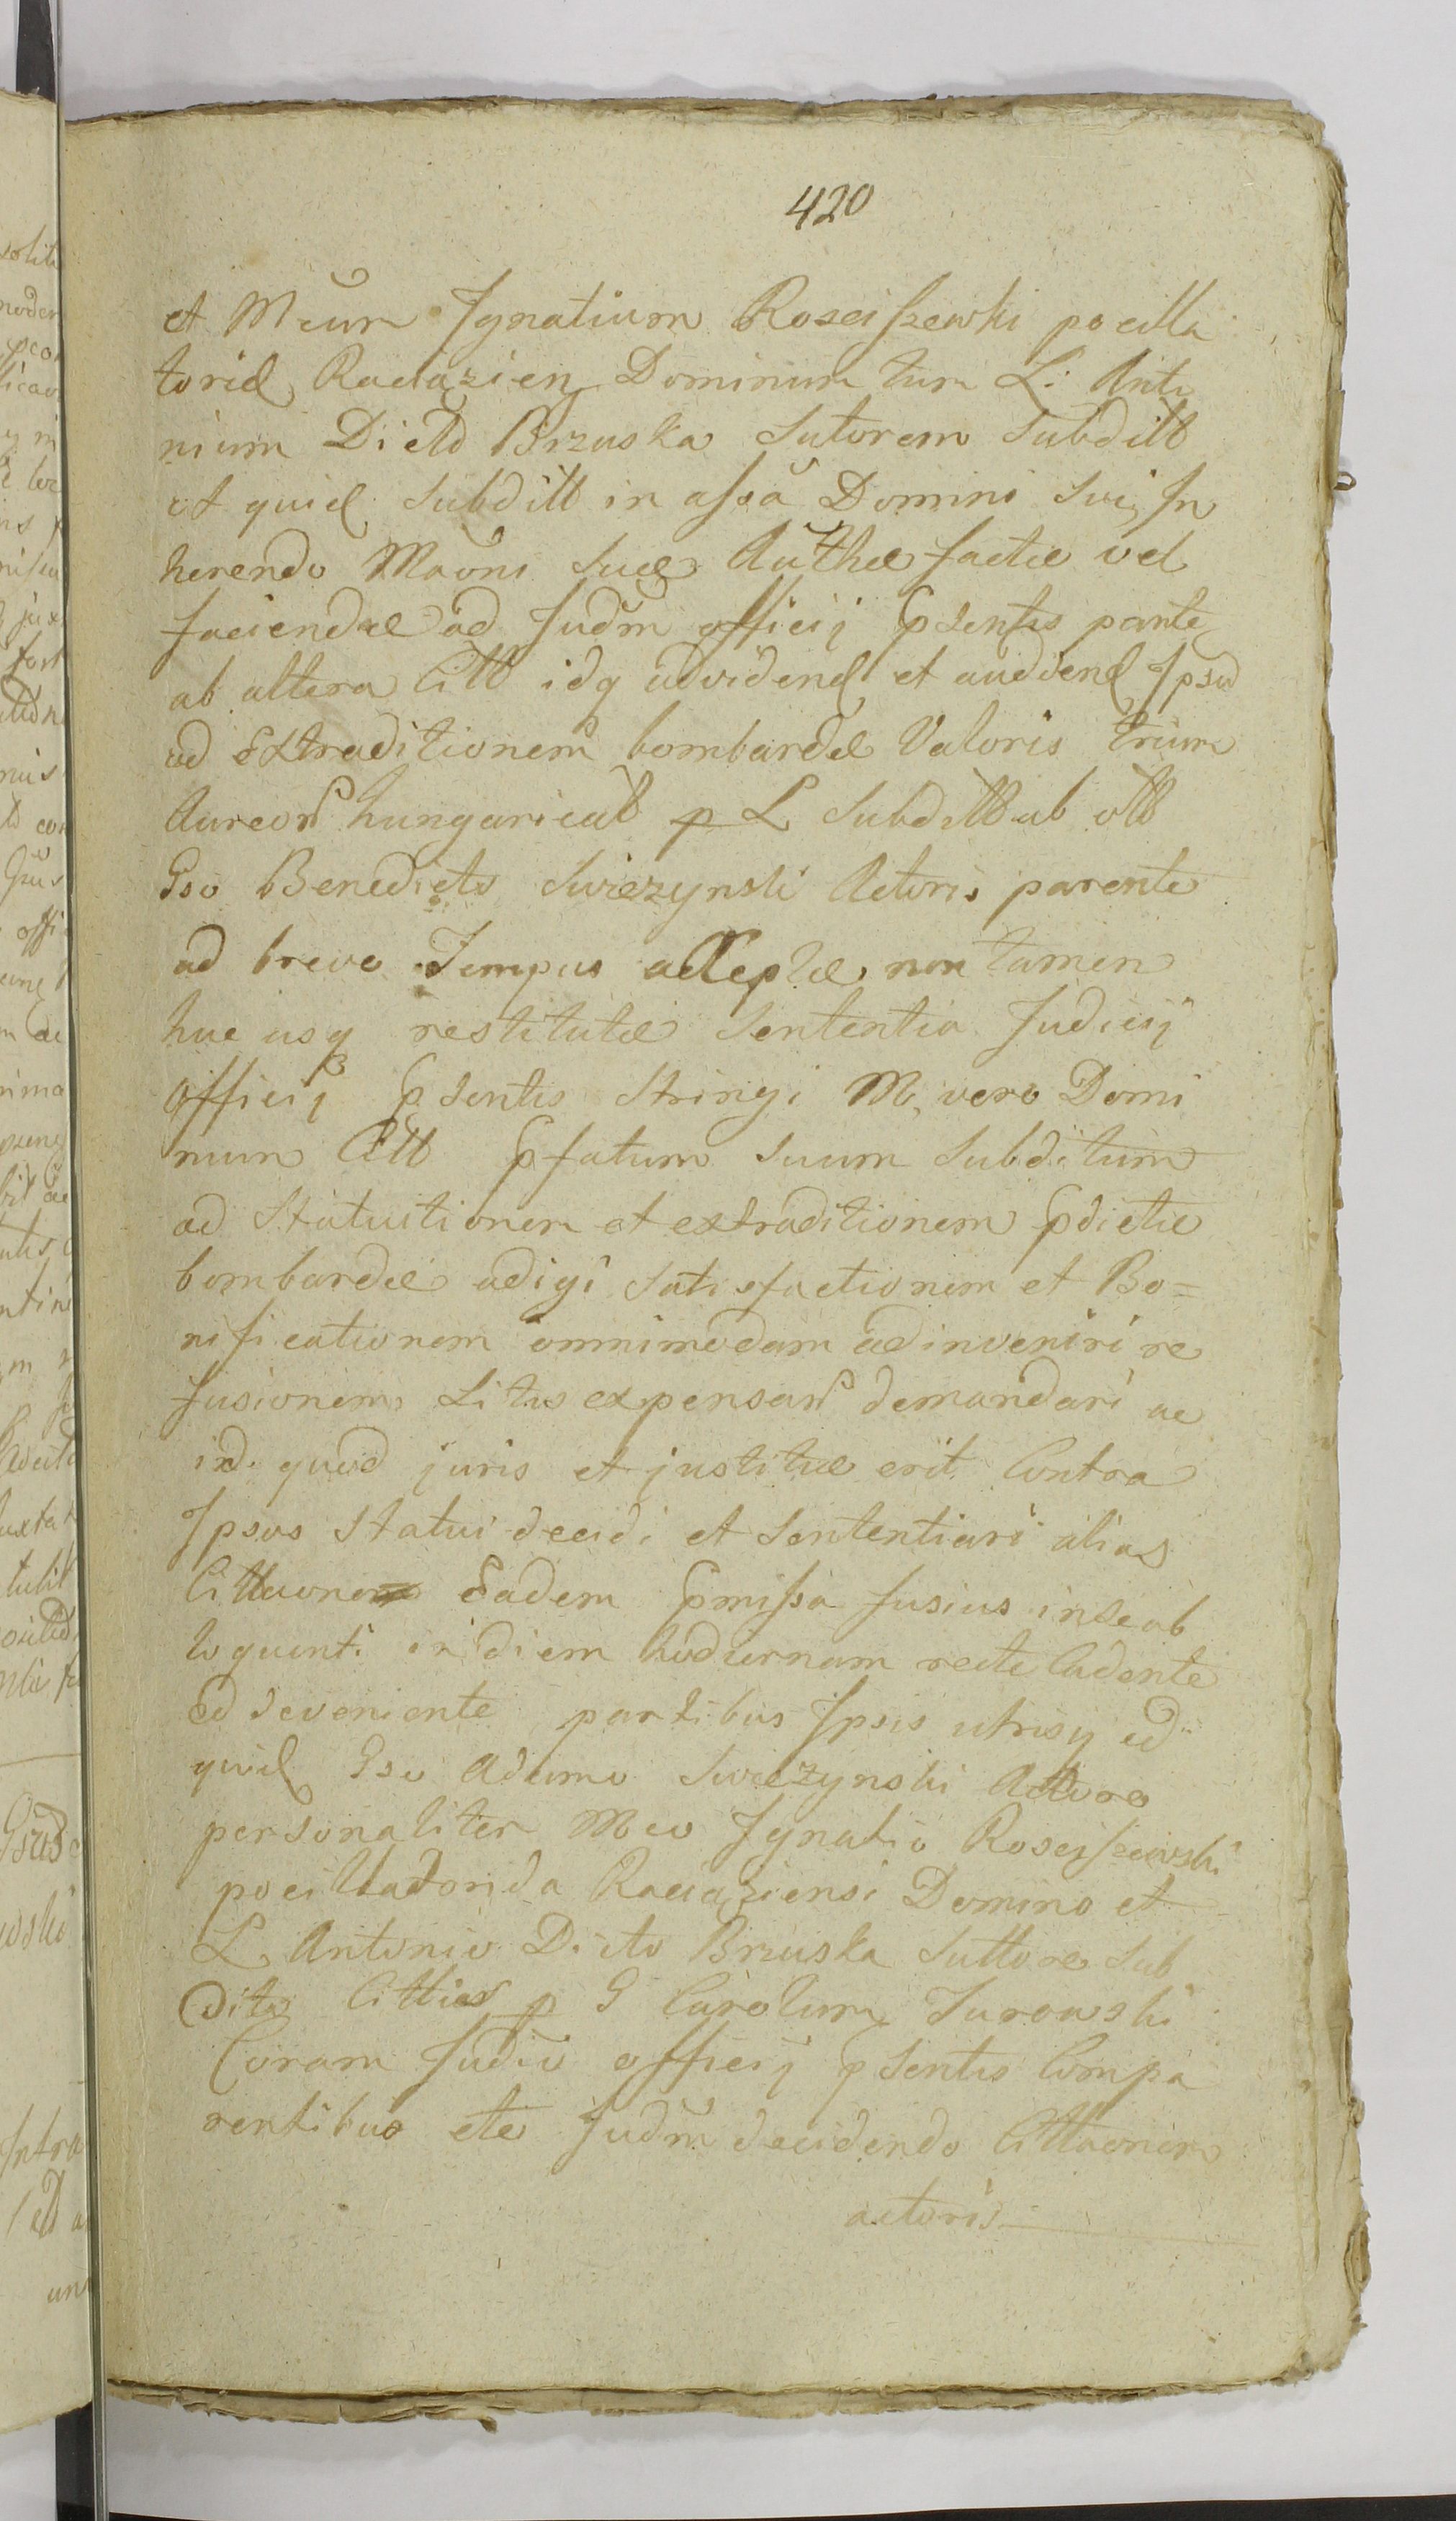 420
et Mcum Ignatium Rosciszewski pocilla
torid Raciązien Dominum tum L: Anto
nium Dicto Brzuska Sutorem Subditt
et quid Subditt in assã Domini Sui, In
herendo Mãoni Suæ Aũthæ factæ vel
faciendæ ad Judm̃ officij pSentis parte
ab altera Citt idq advidend et audiend Ipsũ
ad Extraditionem bombardæ Valoris trium
Aureor hungaricat p L Subditt ab ott
Gso Benedicto Swiezynski Actoris parente
ad breve Tempus acceptæ non tamen
huc usq restitutæ Sententia Judicij
Officij pSentis Stringi M, vero Domi
num Citt pfatum Suum Subditum
ad Statuitionem et extraditionem pdictæ
bombardæ adigi Satisfactionem et Bo=
nificationem omnimodam adinveniri re
fusionem Litis expensar demandari ac
id. quod juris et justitiæ erit Contra
Ipsos Statui decidi et Sententiari alias
Cittaone Eadem pmissa fusius in se ob
loquenti in diem hodiernam recte Cadente
ad deveniente partibus Ipsis utrisq ad
quid Gso Adamo Swiezynski Actore
personaliter Mco Ignatio Rosciszewski
pocillatorida Raciąziensi Domino et
L Antonio Dicto Brzuska Suttore Sub
dito Cittis p G Carolum Turowski
Coram Judio officij pSentis Compa
rentibus etc Judm̃ decidendo Cittaonem
actoris